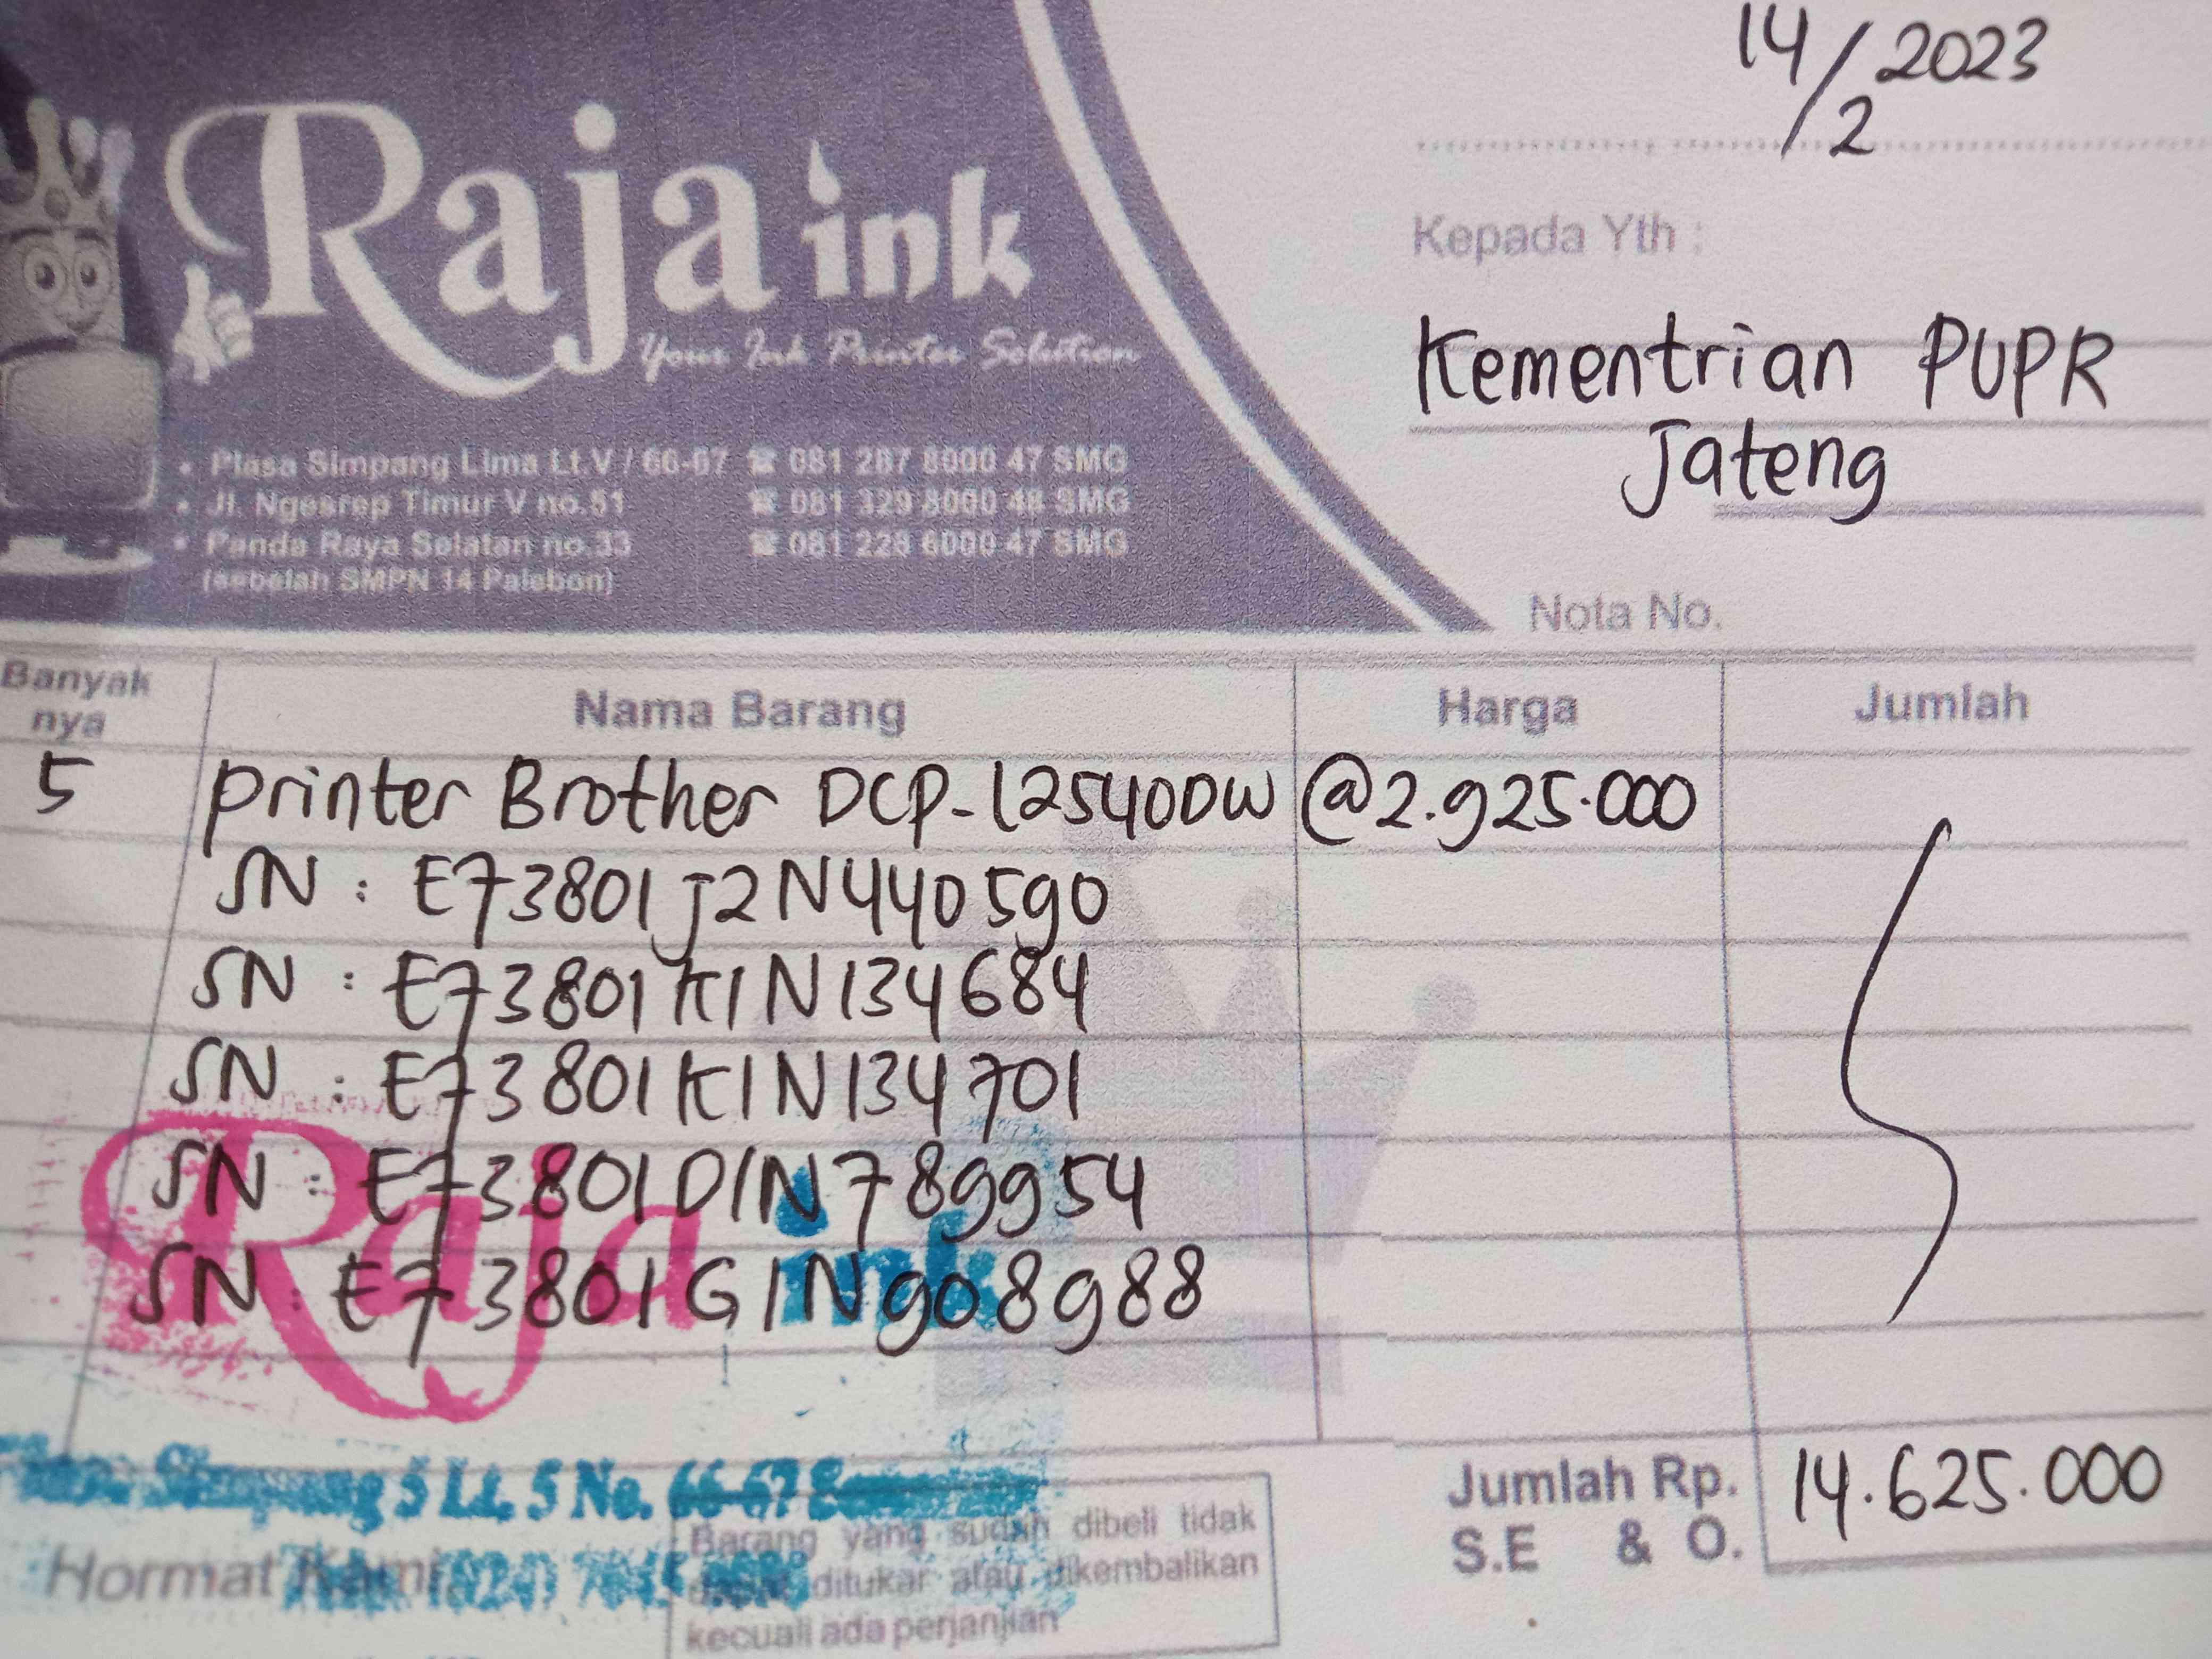 14/2 2023
Raja ink
Your Ink Printer Solution
Kepada Yth :
Kementrian PUPR
Jateng
• Plasa Simpang Lima Lt.V / 66-67 ☎ 081 287 8000 47 SMG
• Jl. Ngesrep Timur V no.51 ☎ 081 329 8000 48 SMG
• Panda Raya Selatan no.33 ☎ 081 228 6000 47 SMG
(sebelah SMPN 14 Palebon)
Nota No.
Banyak nya Nama Barang Harga Jumlah
5 printer Brother DCP-L2540DW @2.925.000
SN : E73801J2N440590
SN : E73801K1N134684
SN : E73801K1N134701
SN : E73801D1N789954
SN : E73801G1N908988
Raja ink
Simpang 5 Lt. 5 No. 66-67
Jumlah Rp. 14.625.000
S.E & O.
Hormat Kami,
Barang yang sudah dibeli tidak
dapat ditukar atau dikembalikan
kecuali ada perjanjian